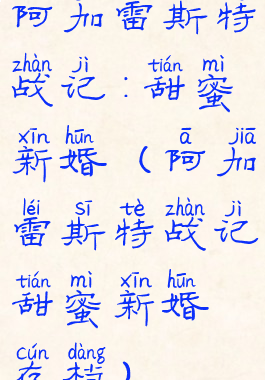 阿加雷斯特
zhàn jì tián mì
战记:甜蜜
xīn hūn ā jiā
新婚(阿加
léi sī tè zhàn jì
雷斯特战记
tián mì xīn hūn
甜蜜新婚
cún dàng
存档)